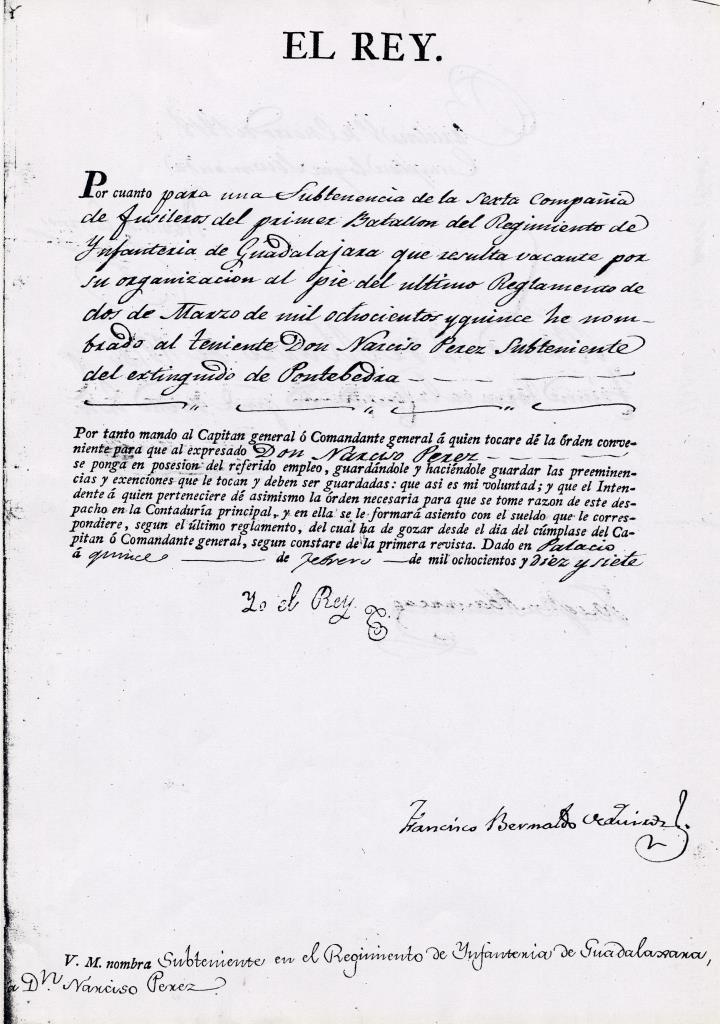 EL REY.
Por cuanto para una Subtenencia de la Sexta Compañia
de fusileros del primer Batallon del Regimiento de
Ynfanteria de Guadalajara que resulta vacante por
su organizacion al pie del ultimo Reglamento de
dos de Marzo de mil ochocientos y quince he nom-
brado al teniente Don Narciso Perez Subteniente
del extinguido de Pontebedra
Por tanto mando al Capitan general ó Comandante general á quien tocare dé la órden conve-
niente para que al expresado Don Narciso Perez
se ponga en posesion del referido empleo, guardándole y haciéndole guardar las preeminen-
cias y exenciones que le tocan y deben ser guardadas: que asi es mi voluntad; y que el Inten-
dente á quien perteneciere dé asimismo la órden necesaria para que se tome razon de este des-
pacho en la Contaduría principal, y en ella se le formará asiento con el sueldo que le corres-
pondiere, segun el último reglamento, del cual ha de gozar desde el dia del cúmplase del Ca-
pitan ó Comandante general, segun constare de la primera revista. Dado en Palacio
á quince de febrero de mil ochocientos y diez y siete
Yo el Rey.
Francisco Bernaldo
V. M. nombra Subteniente en el Regimiento de Ynfanteria de Guadalaxara,
a Dn Narciso Perez.